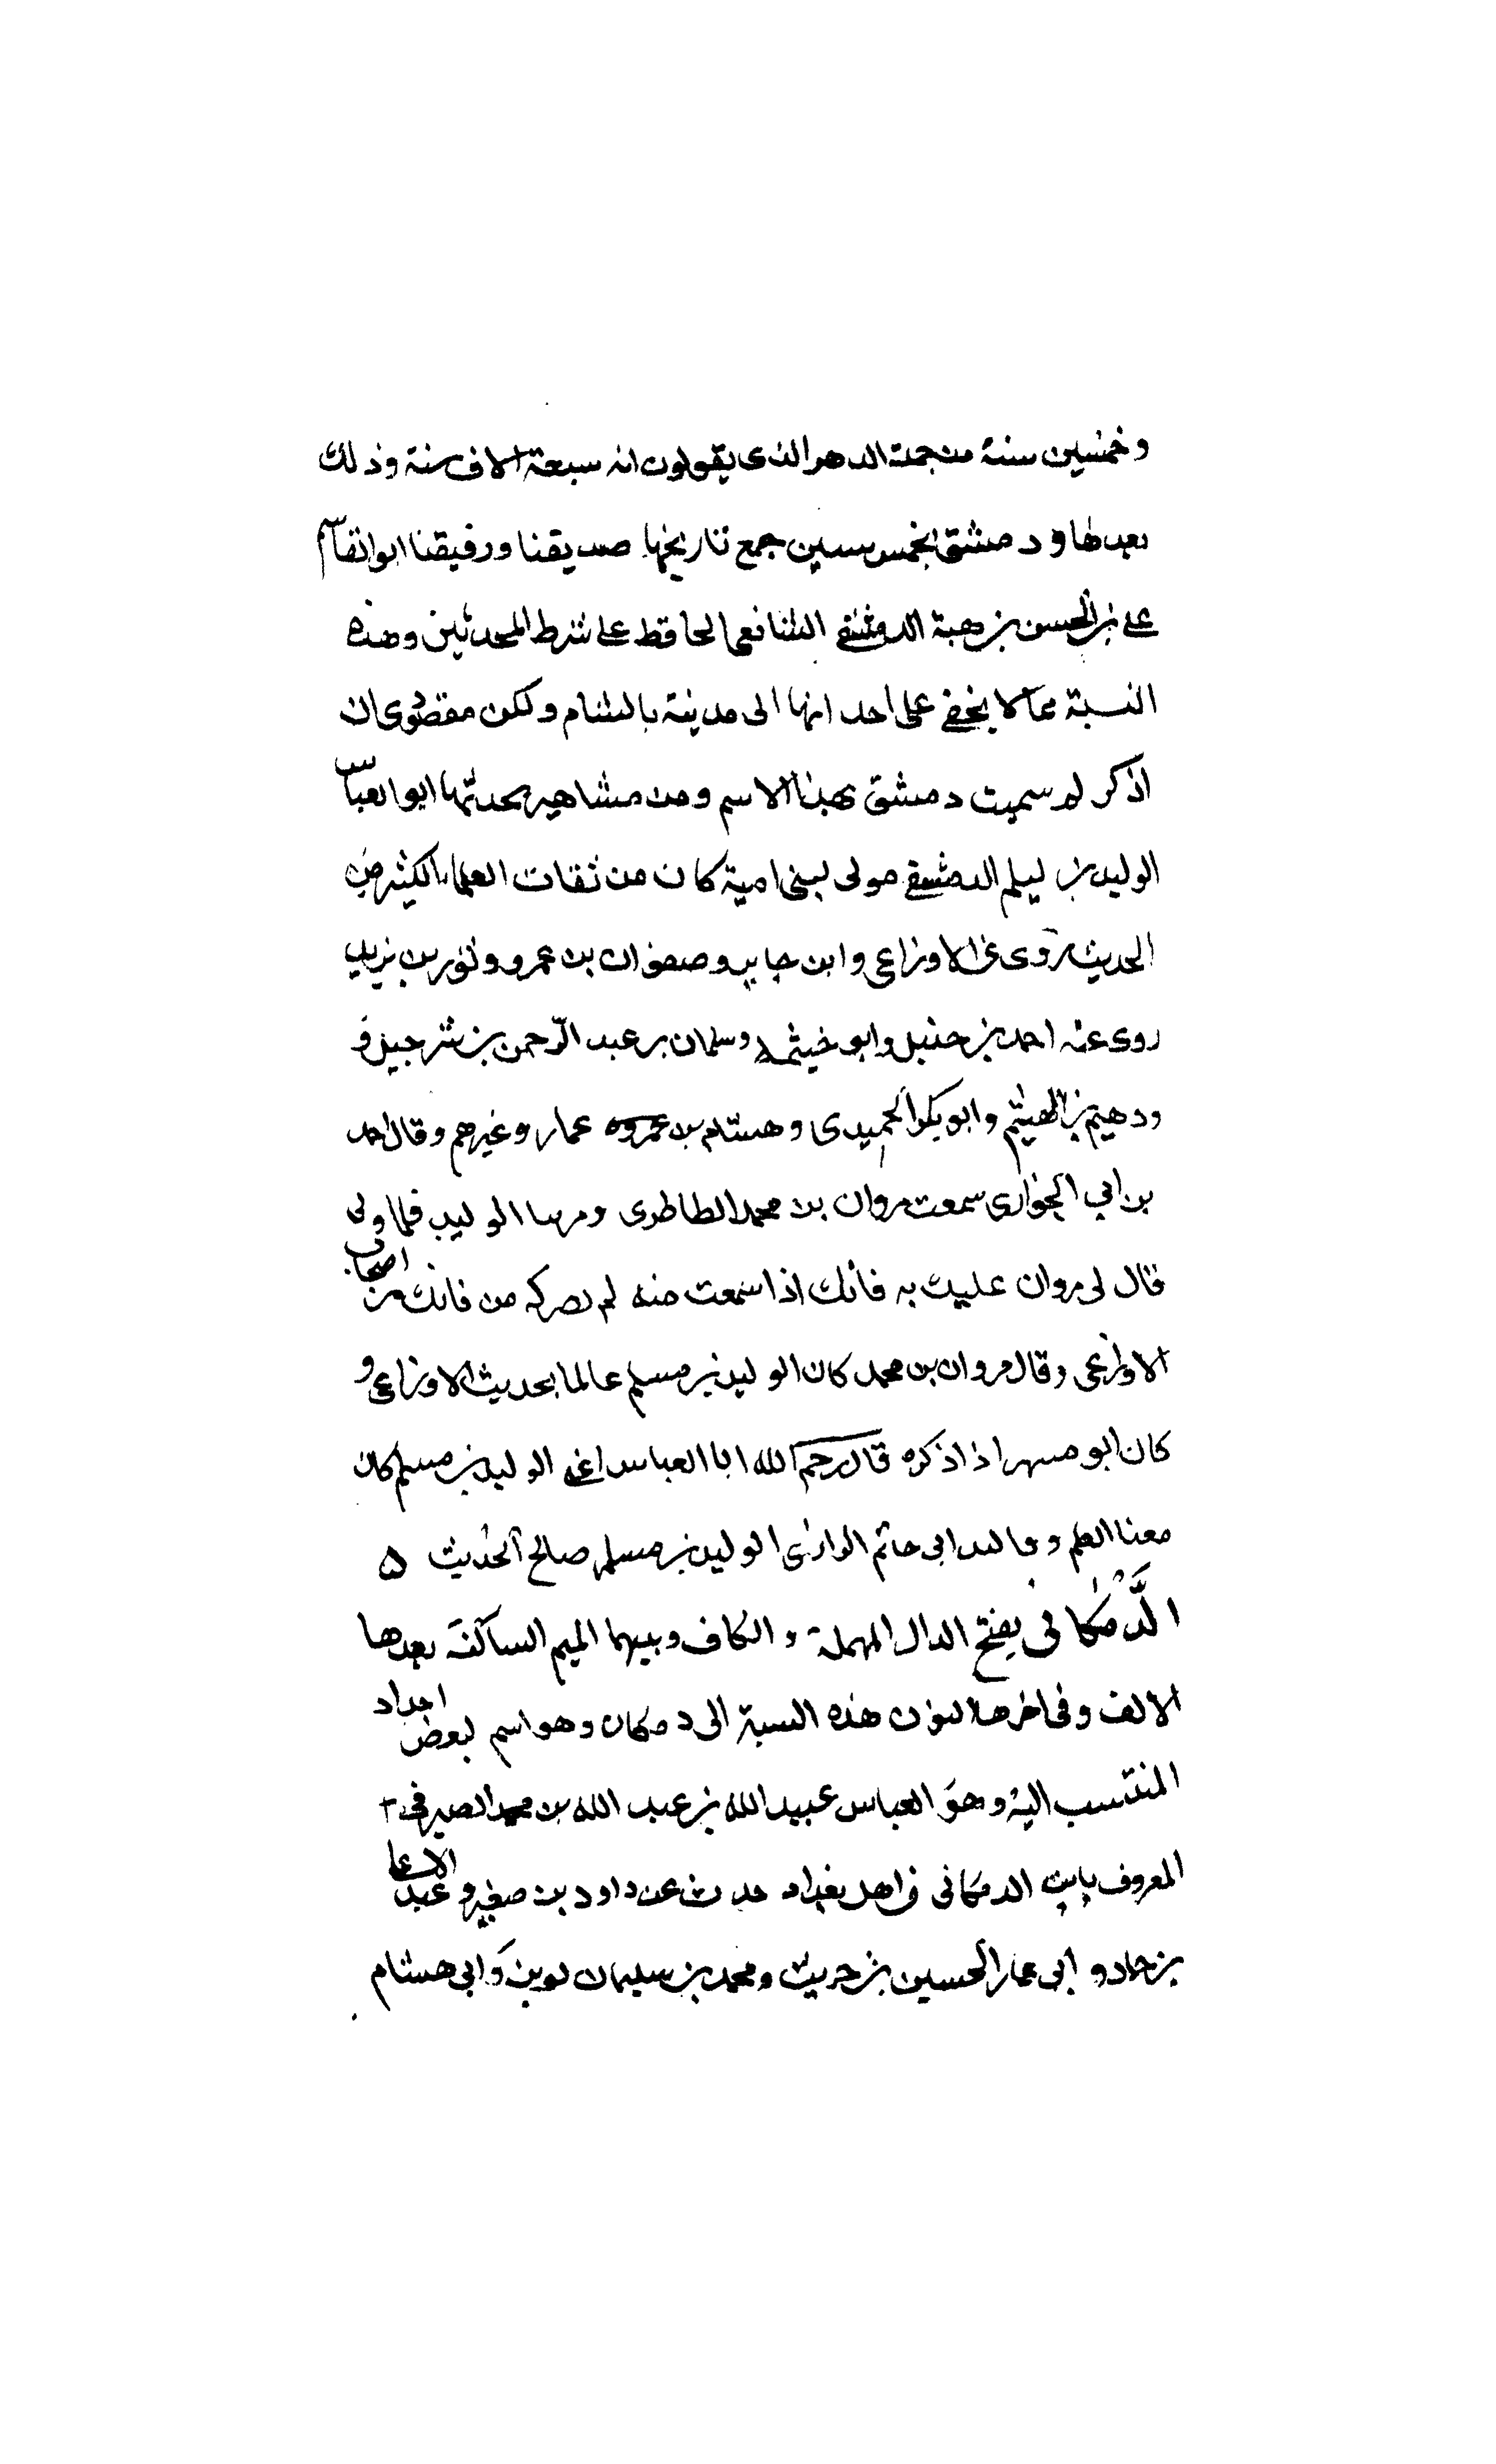 وخمسين سنة من جملة الدهر الذى يقولون انه سبعة الاف سنة وذلك
بعد بناء دمشق بخمس سنين جمع تاريخها صديقنا ورفيقنا ابو القاسم
على بن الحسن بن هبة الدمشقى الشافعى الحافظ على شرط المحدثين وهذه
النسبة مما لا يخفى على احد انها الى مدينة بالشام ولكن مقصودى ان
اذكر لم سميت دمشق بهذا الاسم ومن مشاهير محدثيها ابو العباس
الوليد بن ليلم الدمشقى مولى لبنى امية كان من ثقات العلماء الكثيرين
الحديث روى عن الاوزاعى وابن جابر وصفوان بن عمرو وثور بن يزيد
روى عنه احمد بن حنبل وابو خيثمة وسلمان بن عبد الرحمن بن شرحبيل و
ودهيم بن الهيثم وابو بكر الحميدى وهشام بن عمروه عمار وغيرهم وقال احمد
بن ابى الحوارى سمعت مروان بن محمد الطاطرى ومر بنا الوليد فلما ولى
قال لى مروان عليك به فانك اذا سمعت منه لم يضرك من فاتك من اصحاب
الاوزاعى وقال مروان بن محمد كان الوليد بن مسلم عالما بحديث الاوزاعى و
كان ابو مسهر اذا ذكره قال رحم الله ابا العباس اعنى الوليد بن مسلم كان
معنا العلم وقال ابن ابى حاتم الرازى الوليد بن مسلم صالح الحديث ه
الدَّمْكانى بفتح الدال المهملة والكاف وبينهما الميم الساكنة بعدها
الالف وفى اخرها النون هذه النسبة الى دمكان وهو اسم لبعض اجداد
المنتسب اليه وهو العباس عبيد الله بن عبد الله بن محمد الصيرفى
المعروف بابن الدمكانى من اهل بغداد حدث عن داود بن صغير وعبد الاعلى
بن حماد وابى عمار الحسين بن حريث ومحمد بن سليمان لوين وابى هشام